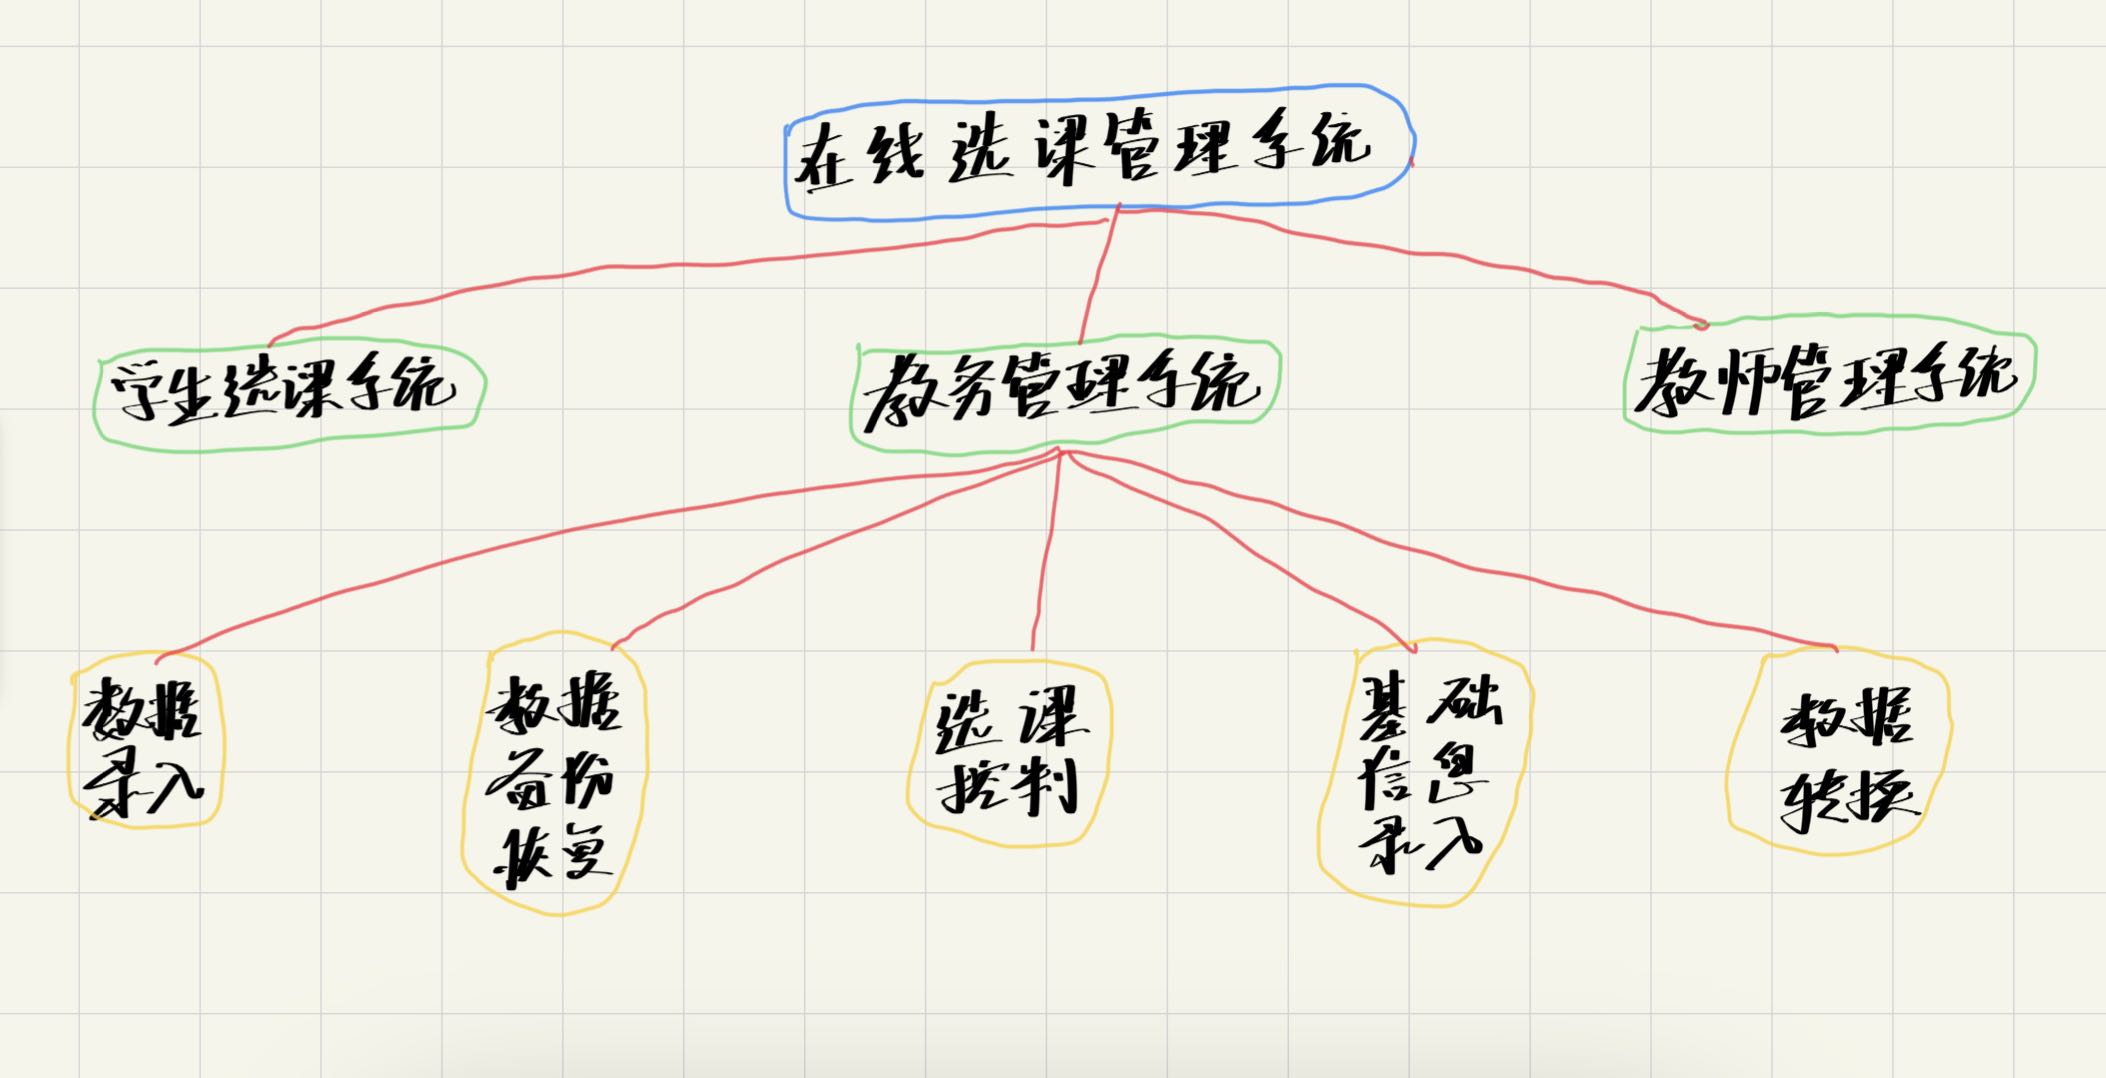 在线选课管理系统
学生选课系统
教务管理系统
教师管理系统
数据
录入
数据
备份
恢复
选课
控制
基础
信息
录入
数据
转换